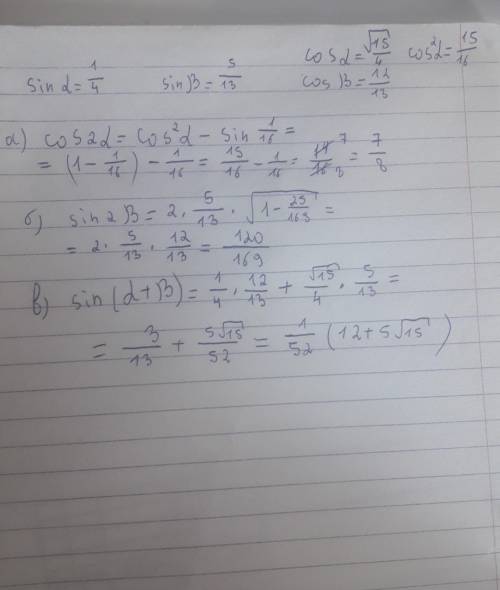 cos α = √15/4 cos²α = 15/16
sin α = 1/4 sin β = 5/13 cos β = 12/13
а) cos 2α = cos²α - sin 1/16 =
= (1 - 1/16) - 1/16 = 15/16 - 1/16 = 14/16 7 8 = 7/8
б) sin 2β = 2 · 5/13 · √(1 - 25/169) =
= 2 · 5/13 · 12/13 = 120/169
в) sin (α + β) = 1/4 · 12/13 + √15/4 · 5/13 =
= 3/13 + 5√15/52 = 1/52 (12 + 5√15)